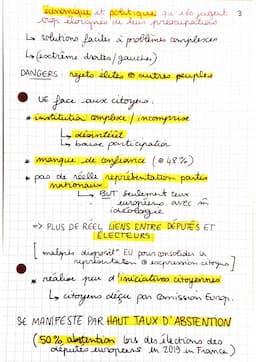 économique et politique qu'ils jugent 3
trop éloignés de leurs préoccupations
↳ solutions faciles à problèmes complexes
↳ (extrême droites/gauches)
DANGERS : rejets élites @ autres peuples
• UE face aux citoyens :
* institution complexe / incomprise
↳ désintérêt
↳ baisse participation
* manque de confiance (@ 48%)
* pas de réelle représentation partis
nationaux
↳ BUT seulement ceux
européens avec m̂
idéologie
=> PLUS DE RÉEL LIENS ENTRE DÉPUTÉS ET
ÉLECTEURS.
[malgré dispositif EU pour consolider la
représentation @ expression citoyens]
* réalise peu d'initiatives citoyennes
↳ citoyens déçus par Comission Europ.
SE MANIFESTE PAR HAUT TAUX D'ABSTENTION
(50% abstention lors des élections des
députés européens en 2019 in France)